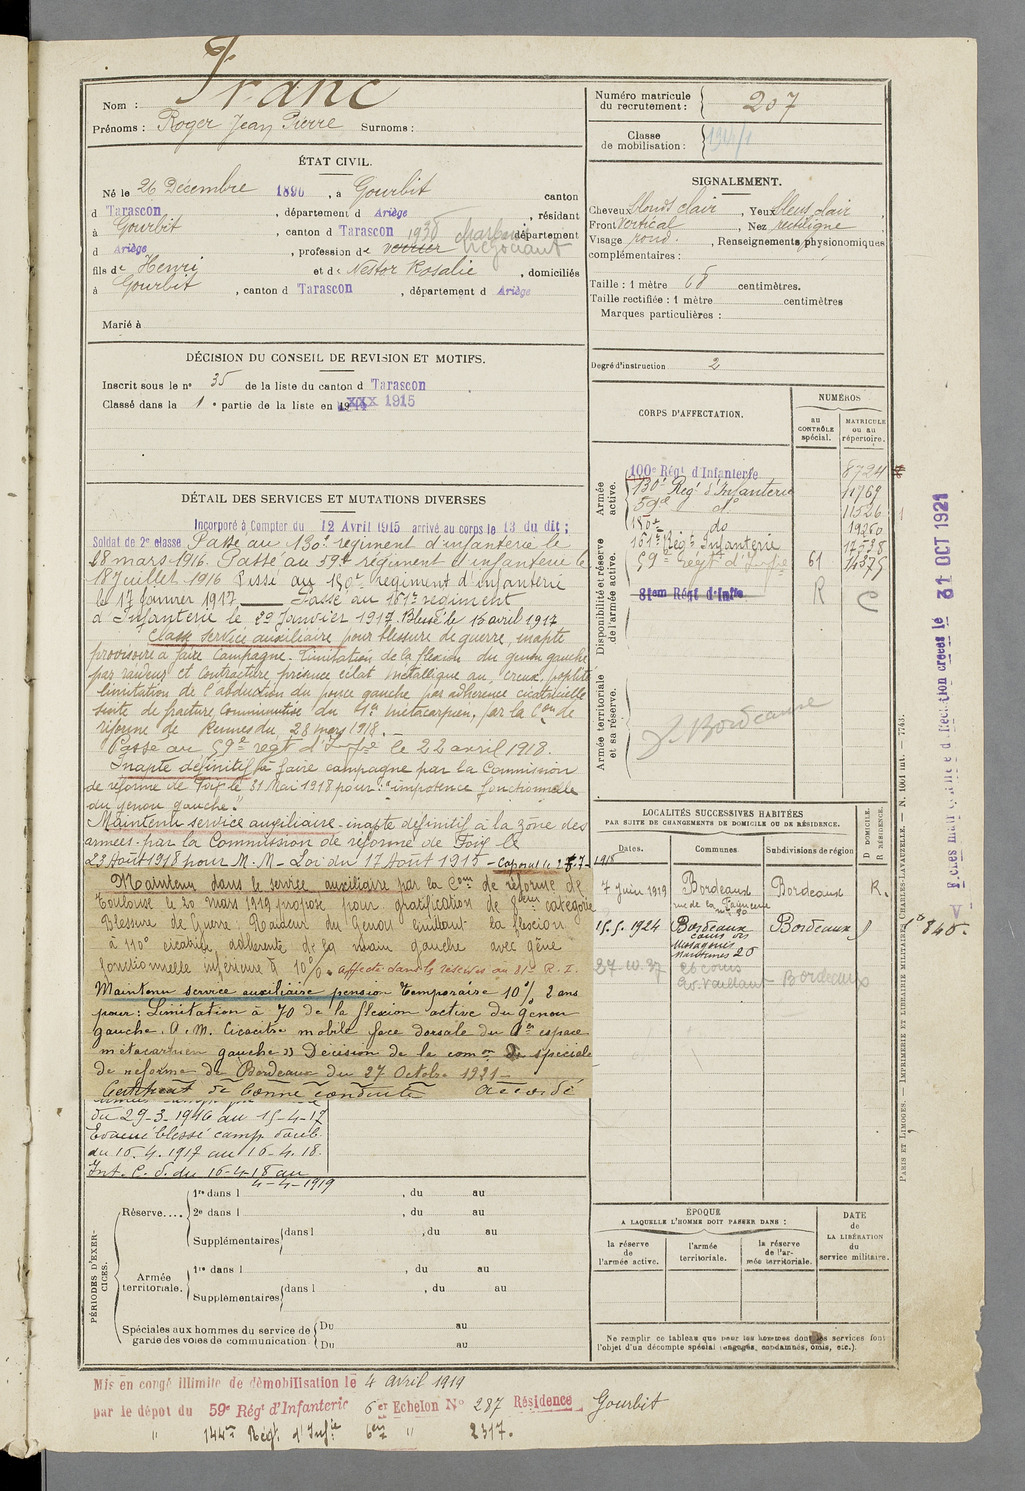 Nom : Franc
Prénoms : Roger Jean Pierre Surnoms :
Numéro matricule du recrutement : 207
Classe de mobilisation :
ÉTAT CIVIL.
Né le 26 Décembre 1896, à Gourbit canton
d Tarascon, département d Ariège, résidant
à Gourbit, canton d Tarascon 1936 département
d Ariège, profession de verrier négociant
fils de Henri et de Nestor Rosalie, domiciliés
à Gourbit, canton d Tarascon, département d Ariège
Marié à
SIGNALEMENT.
Cheveux blonds clair, Yeux bleus clair
Front vertical, Nez rectiligne
Visage rond., Renseignements physionomiques
complémentaires :
Taille : 1 mètre 68 centimètres.
Taille rectifiée : 1 mètre centimètres
Marques particulières :
Degré d'instruction 2
DÉCISION DU CONSEIL DE REVISION ET MOTIFS.
Inscrit sous le n° 35 de la liste du canton d Tarascon
Classé dans la 1e partie de la liste en 1915
CORPS D'AFFECTATION.
NUMÉROS
au CONTRÔLE spécial.
MATRICULE ou au répertoire.
Armée active.
100e Régt d'Infanterie 8724
130e Regt d'Infanterie 11769
59e do 11526
150e do 19260
161e Regt Infanterie 17598
59e Regt d'Infie 61 14375
Disponibilité et réserve de l'armée active.
81em Régt d'Infie R C
Armée territoriale et sa réserve.
Bordeaux
DÉTAIL DES SERVICES ET MUTATIONS DIVERSES
Incorporé à Compter du 12 Avril 1915 arrivé au corps le 13 du dit ;
Soldat de 2e classe Passé au 130e regiment d'infanterie le
28 mars 1916. Passé au 59e regiment d'infanterie le
18 Juillet 1916 Passé au 150e regiment d'Infanterie
le 17 Janvier 1917. Passé au 161e regiment
d'Infanterie le 29 Janvier 1917. Blessé le 16 avril 1917
Classé service auxiliaire pour blessure de guerre, inapte
provisoire à faire campagne. Limitation de la flexion du genou gauche
par raideur et contracture présence éclat métallique au creux poplité
limitation de l'abduction du pouce gauche par adhérence cicatricielle
suite de fracture comminutive du 1er métacarpien, par la Con de
réforme de Rennes du 28 mars 1918.
Passé au 59e regt d'Infie le 22 avril 1918.
Inapte définitif à faire campagne par la Commission
de réforme de Foix le 31 Mai 1918 pour : "impotence fonctionnelle
du genou gauche."
Maintenu service auxiliaire - inapte définitif à la zône des
armées - par la Commission de réforme de Foix le
23 Août 1918 pour M. M. - Loi du 17 Août 1915 - Caporal le 1918
Maintenu dans le service auxiliaire par la Com de réforme de
Toulouse le 20 mars 1919 proposé pour gratification de 8em catégorie
Blessure de Guerre. Raideur du Genou gauche la flexion
à 110° cicatrice adhérente de la main gauche avec gêne
fonctionnelle inférieure à 10%. Affecté dans la réserve au 81e R. I.
Maintenu service auxiliaire pension temporaire 10% 2 ans
pour : Limitation à 70 de la flexion active du genou
gauche. A. M. Cicatrice mobile face dorsale du 1er espace
métacarpien gauche » Décision de la comon spéciale
de réforme de Bordeaux du 27 Octobre 1921 -
Certificat de bonne conduite Accordé
du 29-3-1916 au 15-4-17
Evacué blessé camp. doub.
du 16.4.1917 au 16-4.18.
Int. C. S. du 16-4-18 au
4-4-1919
LOCALITÉS SUCCESSIVES HABITÉES
PAR SUITE DE CHANGEMENTS DE DOMICILE OU DE RÉSIDENCE.
Dates. Communes. Subdivisions de région D DOMICILE. R RÉSIDENCE.
7 Juin 1919 Bordeaux Bordeaux R.
rue de la
15.5.1924 Bordeaux Bordeaux D
cours
27.10.37 Bordeaux
ÉPOQUE
A LAQUELLE L'HOMME DOIT PASSER DANS :
la réserve de l'armée active.
l'armée territoriale.
la réserve de l'armée territoriale.
DATE de LA LIBÉRATION du service militaire.
Ne remplir ce tableau que pour les hommes dont les services font
l'objet d'un décompte spécial (engagés, condamnés, omis, etc.).
PÉRIODES D'EXERCICES.
Réserve....
1re dans l , du au
2e dans l , du au
Supplémentaires dans l , du au
Armée territoriale.
1re dans l , du au
Supplémentaires dans l , du au
Spéciales aux hommes du service de garde des voies de communication
Du au
Du au
Mis en congé illimité de démobilisation le 4 avril 1919
par le dépôt du 59e Régt d'Infanterie 6e Echelon N° 287 Résidence Gourbit
" 144e Régt d'Infie 6em " 2317.
PARIS ET LIMOGES. — IMPRIMERIE ET LIBRAIRIE MILITAIRES CHARLES-LAVAUZELLE. — N. 1001 int. — 7743.
le 31 OCT 1921